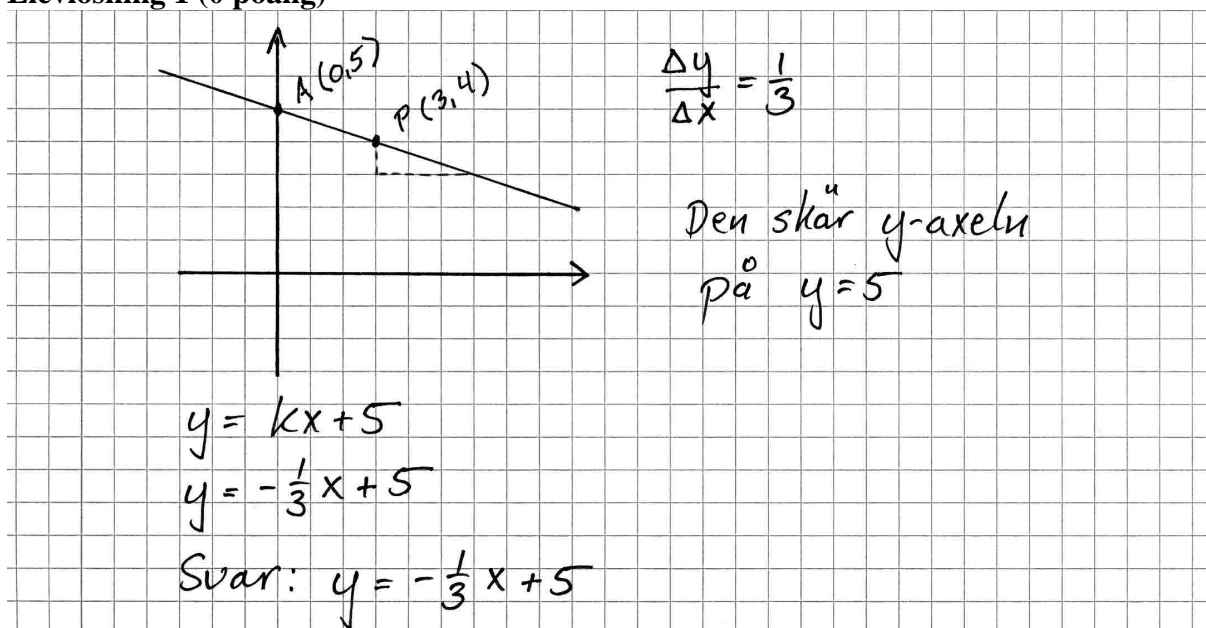 Elevlösning 1 (0 poäng)
A (0,5)
P (3,4)
Δy/Δx = 1/3
Den skär y-axeln
på y = 5
y = kx + 5
y = -1/3 x + 5
Svar: y = -1/3 x + 5